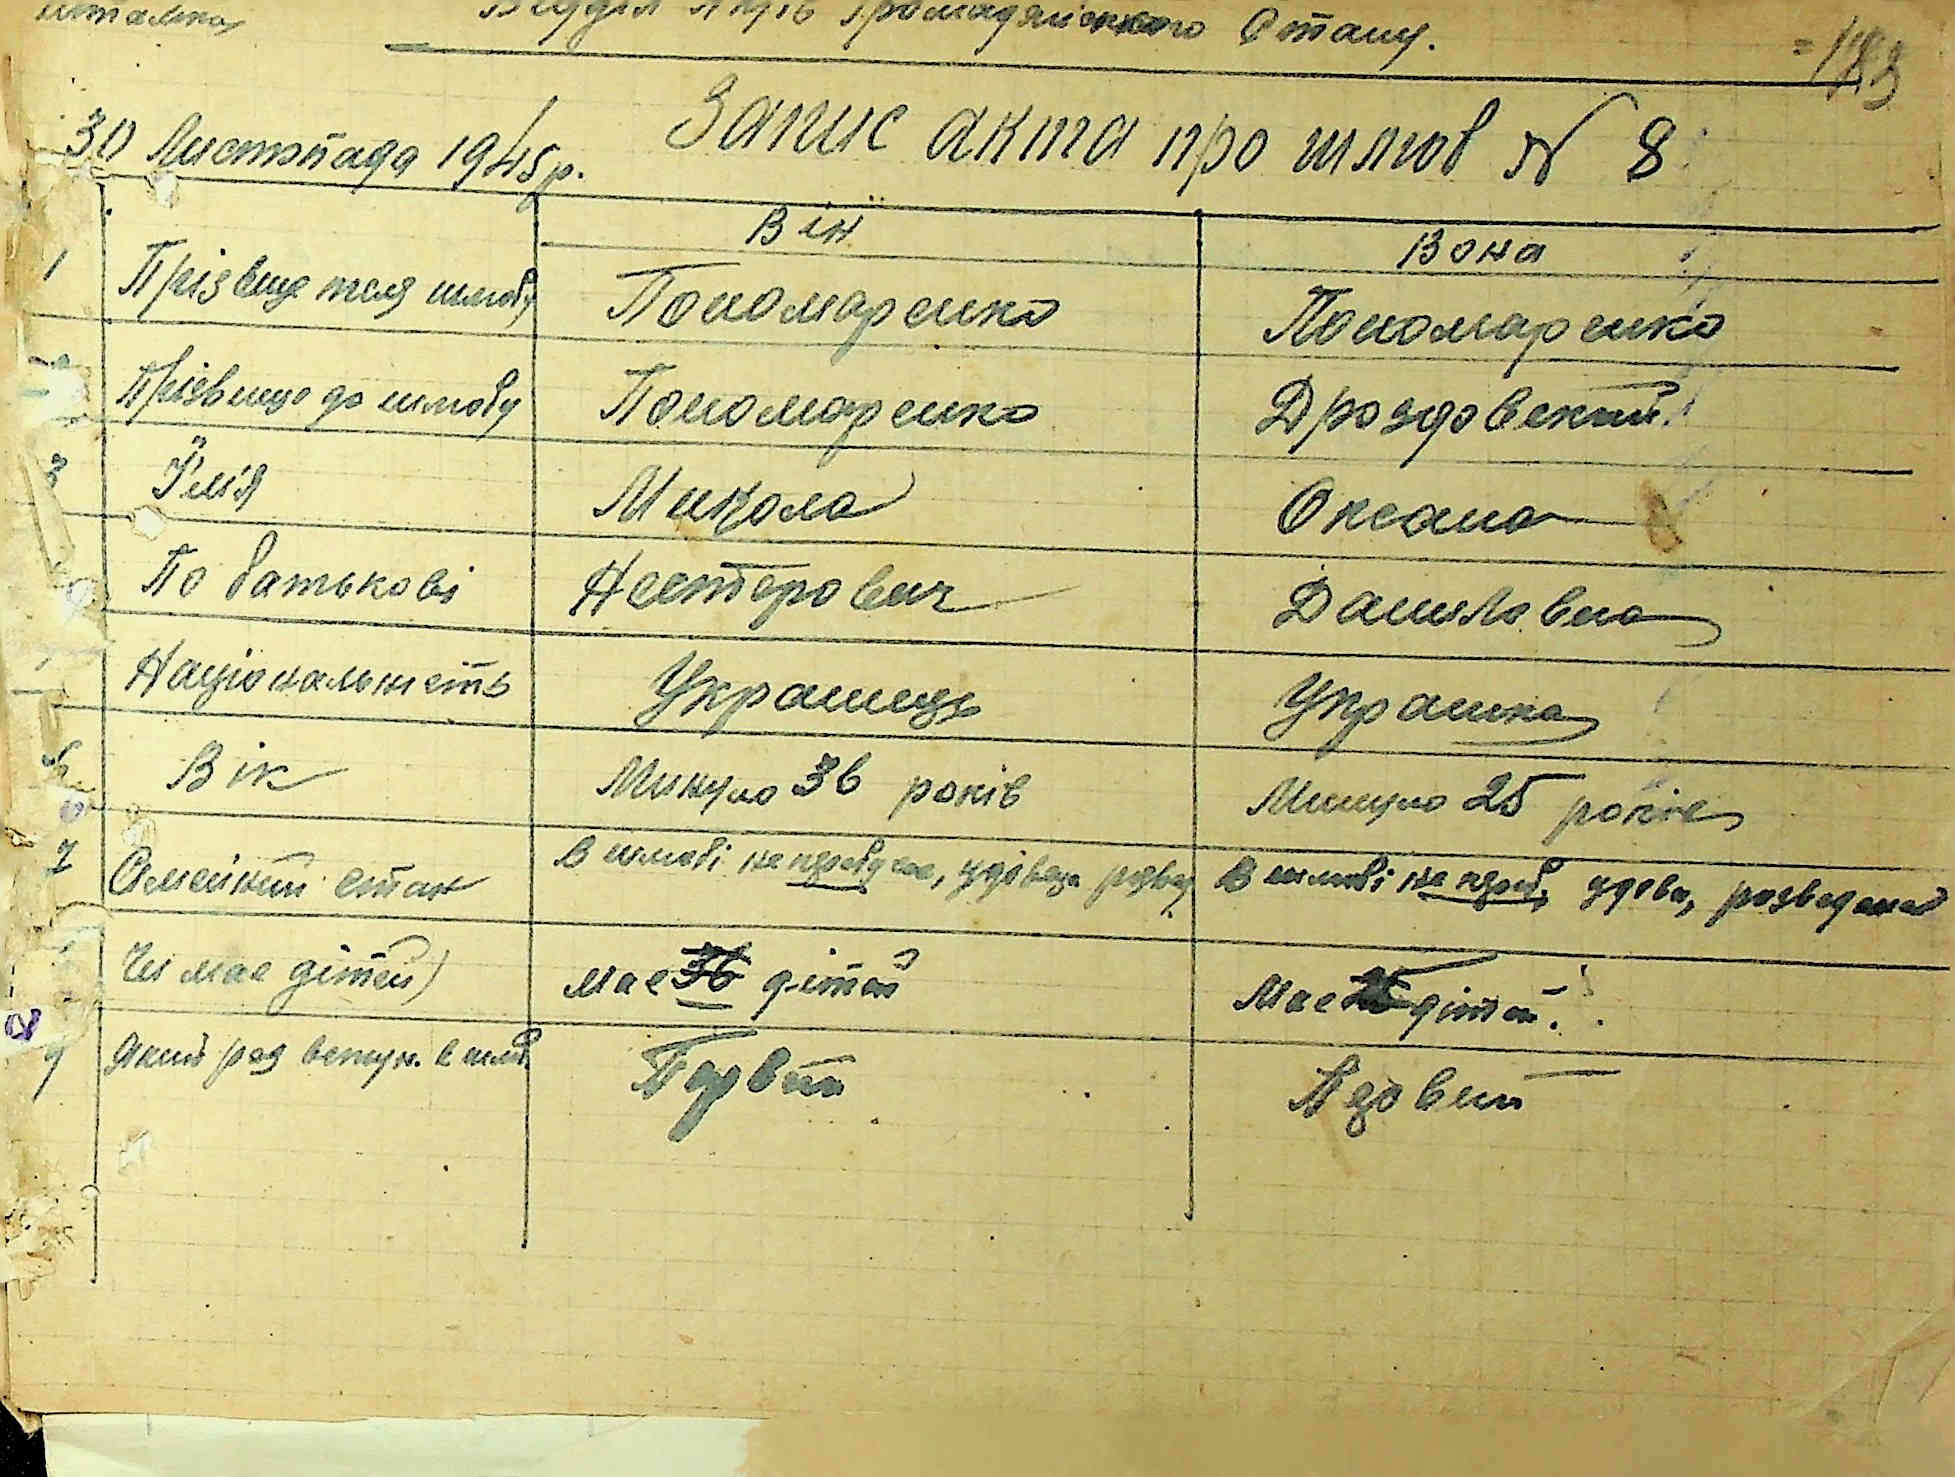 Відділ Актів Громадянського Стану.
30 Листопада 1945 р. Запис акта про шлюб N 8
Він Вона
1 Прізвище після шлюбу Пономаренко Пономаренко
Прізвище до шлюбу Пономаренко Дроздовский.
3 Їм'я Микола Оксана
По батькові Нестерович Даниловна
Національність Украинець Украинка
Вік Минуло 36 років Минуло 25 років
7 Семейний стан В шлюбі не перебував, удівець розвед В шлюбі не переб, удова, розведена
Чи має дітей має 36 дітей Має 25 дітей.
9 Який раз вступ. в шлюб Первий Первий